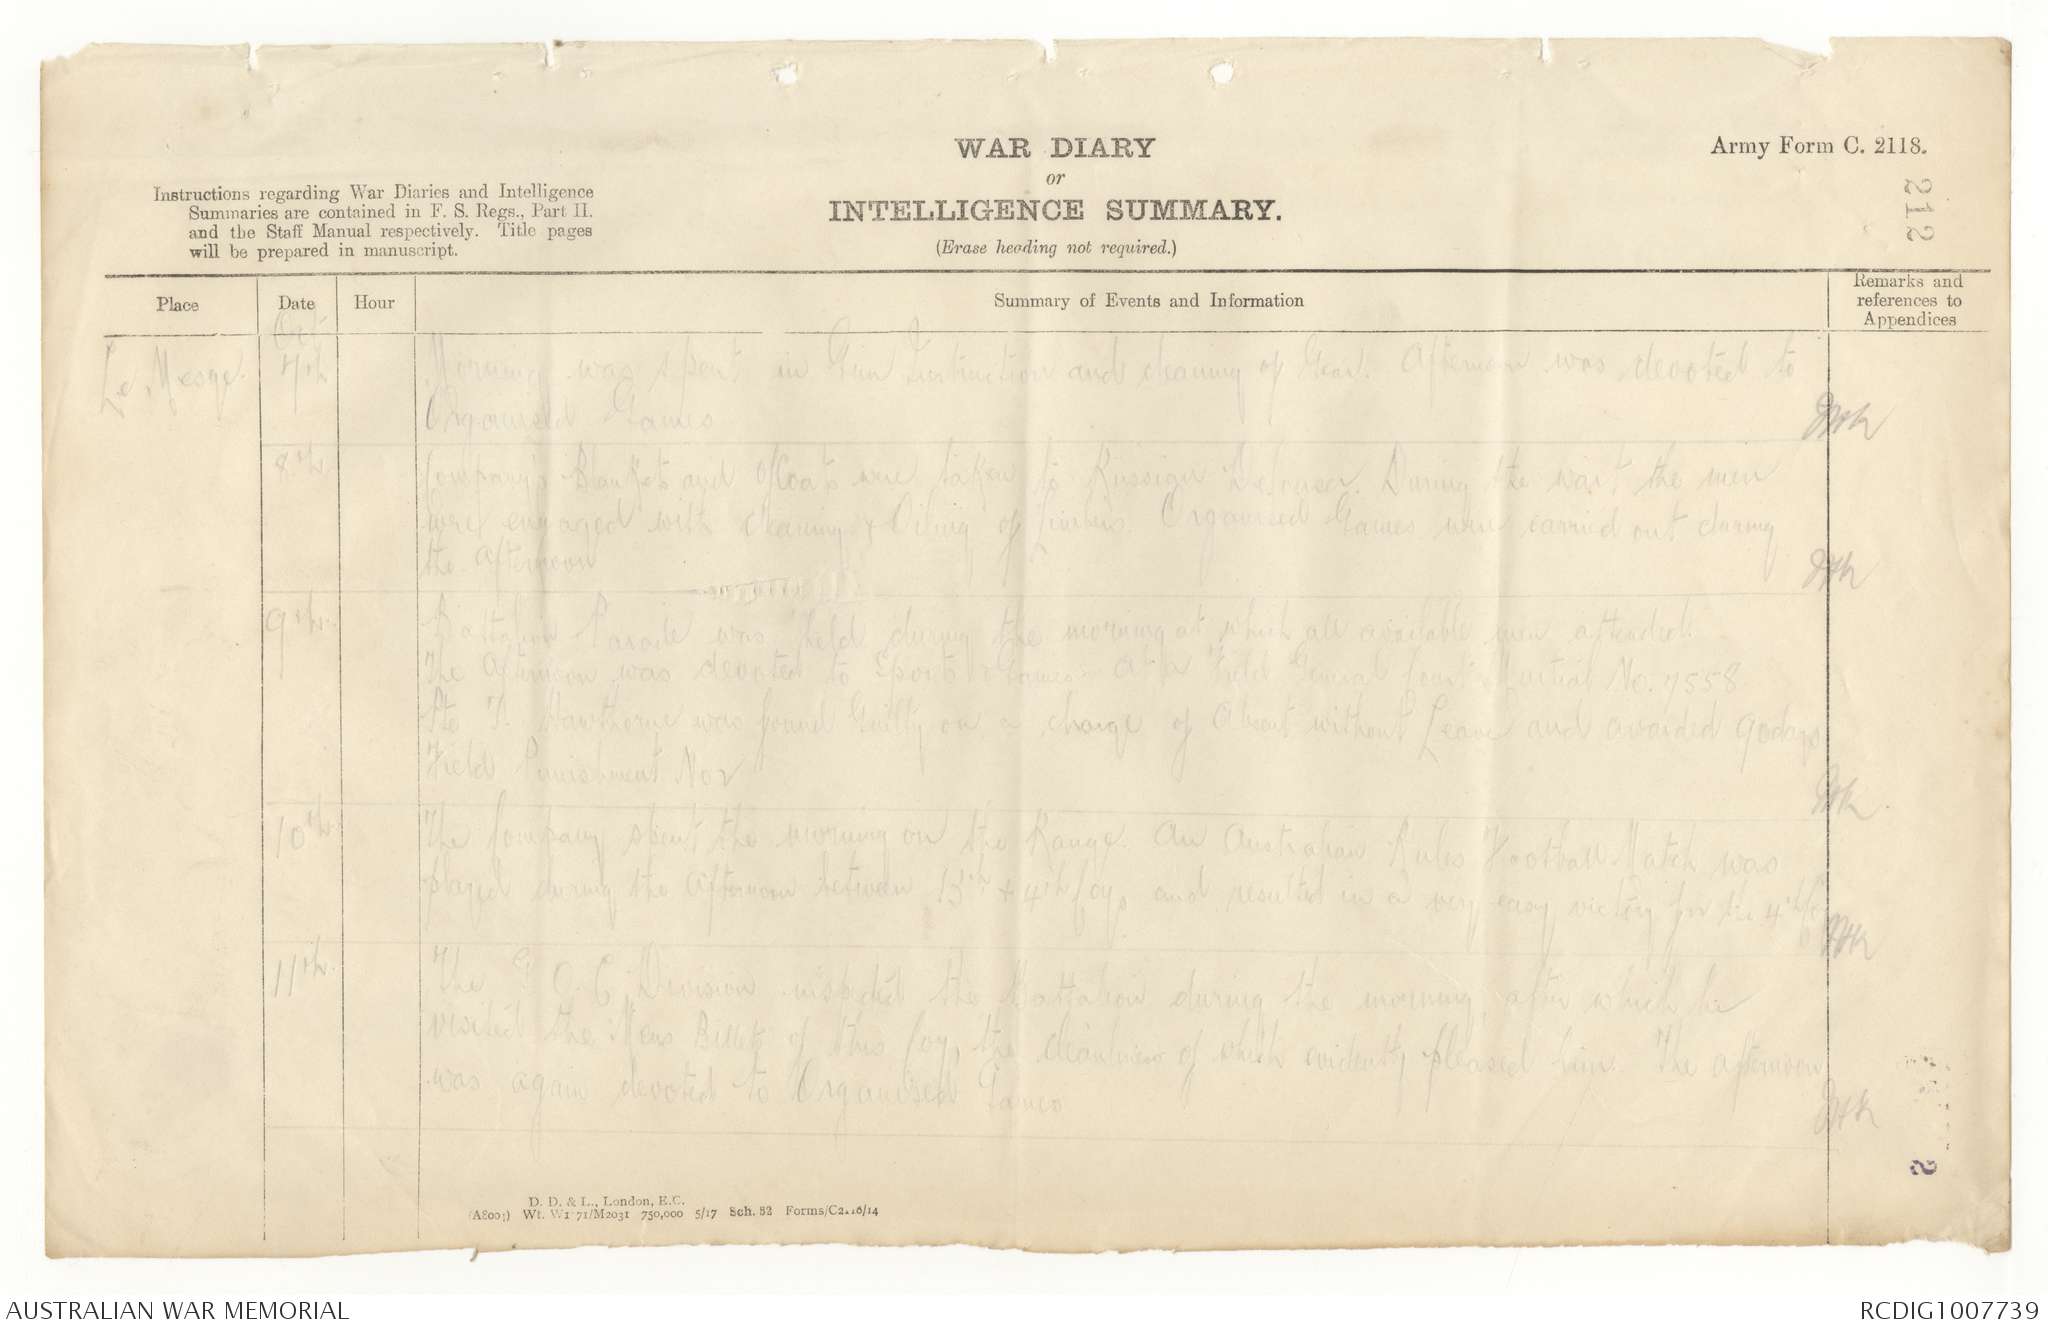 WAR DIARY
or
INTELLIGENCE SUMMARY.
(Erase heading not required.)
Army Form C. 2118.
212
Instructions regarding War Diaries and Intelligence
Summaries are contained in F. S. Regs., Part II.
and the Staff Manual respectively. Title pages
will be prepared in manuscript.
Place
Date
Hour
Summary of Events and Information
Remarks and
references to
Appendices
Oct
Le Mesge. 7th Morning was spent in Gun Instruction and cleaning of Gear. Afternoon was devoted to
Organised Games
8th Company's Blankets and O/Coats were taken to Delouser. During the wait the men
were engaged with cleaning & Oiling of Limbers. Organised Games were carried out during
the Afternoon
9th. Battalion Parade was held during the morning at which all available men attended.
The Afternoon was devoted to Sports & Games. At a Field General Court Martial No. 7558
Pte T. Hawthorne was found Guilty on a charge of Absent without Leave and awarded 90 days
Field Punishment No 2
10th. The Company spent the morning on the Range. An Australian Rules Football Match was
played during the Afternoon between 13th & 4th Coys and resulted in a very easy victory for the 4th Coy
11th. The G.O.C. Division inspected the Battalion during the morning after which he
visited the Mens Billets of this Coy, the cleanliness of which evidently pleased him. The afternoon
was again devoted to Organised Games
D. D. & L., London, E.C.
Wt. W1771/M2031 750,000 5/17 Sch. 52 Forms/C2118/14
AUSTRALIAN WAR MEMORIAL
RCDIG1007739